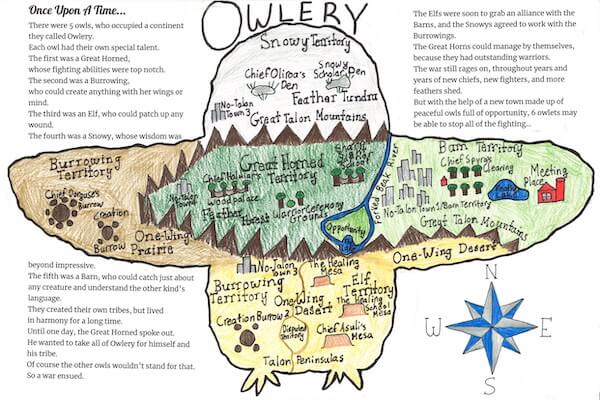 Once Upon A Time...
There were 5 owls, who occupied a continent
they called Owlery.
Each owl had their own special talent.
The first was a Great Horned,
whose fighting abilities were top notch.
The second was a Burrowing,
who could create anything with her wings or
mind.
The third was an Elf, who could patch up any
wound.
The fourth was a Snowy, whose wisdom was
beyond impressive.
The fifth was a Barn, who could catch just about
any creature and understand the other kind's
language.
They created their own tribes, but lived
in harmony for a long time.
Until one day, the Great Horned spoke out.
He wanted to take all of Owlery for himself and
his tribe.
Of course the other owls wouldn't stand for that.
So a war ensued.
The Elfs were soon to grab an alliance with the
Barns, and the Snowys agreed to work with the
Burrowings.
The Great Horns could manage by themselves,
because they had outstanding warriors.
The war still rages on, throughout years and
years of new chiefs, new fighters, and more
feathers shed.
But with the help of a new town made up of
peaceful owls full of opportunity, 6 owlets may
be able to stop all of the fighting...
OWLERY
Snowy Territory
Chief Oliroa's
Den
Snowy
Scholar Den
No-Talon
Town 3
Feather Tundra
Great Talon Mountains
Burrowing
Territory
Chief Dorguse's
Burrow
Creation
Burrow
One-Wing
Prairie
Great Horned
Territory
No-Talon
Town
Woodpalace
Feather
Forest
Warrior Ceremony
Grounds
Forked Beak River
Opportunity
Barn Territory
Chief Spyra's
Clearing
Meeting
Place
Lake
No-Talon Town 1/Barn Territory
Great Talon Mountains
One-Wing Desert
No-Talon
Town 3
The Healing
Mesa
Burrowing
Territory
One-Wing
Desert
Elf
Territory
The Healing
School
Mesa
Creation Burrow 2
Disputed
Territory
Chief Asuli's
Mesa
Talon Peninsulas
N
W
E
S